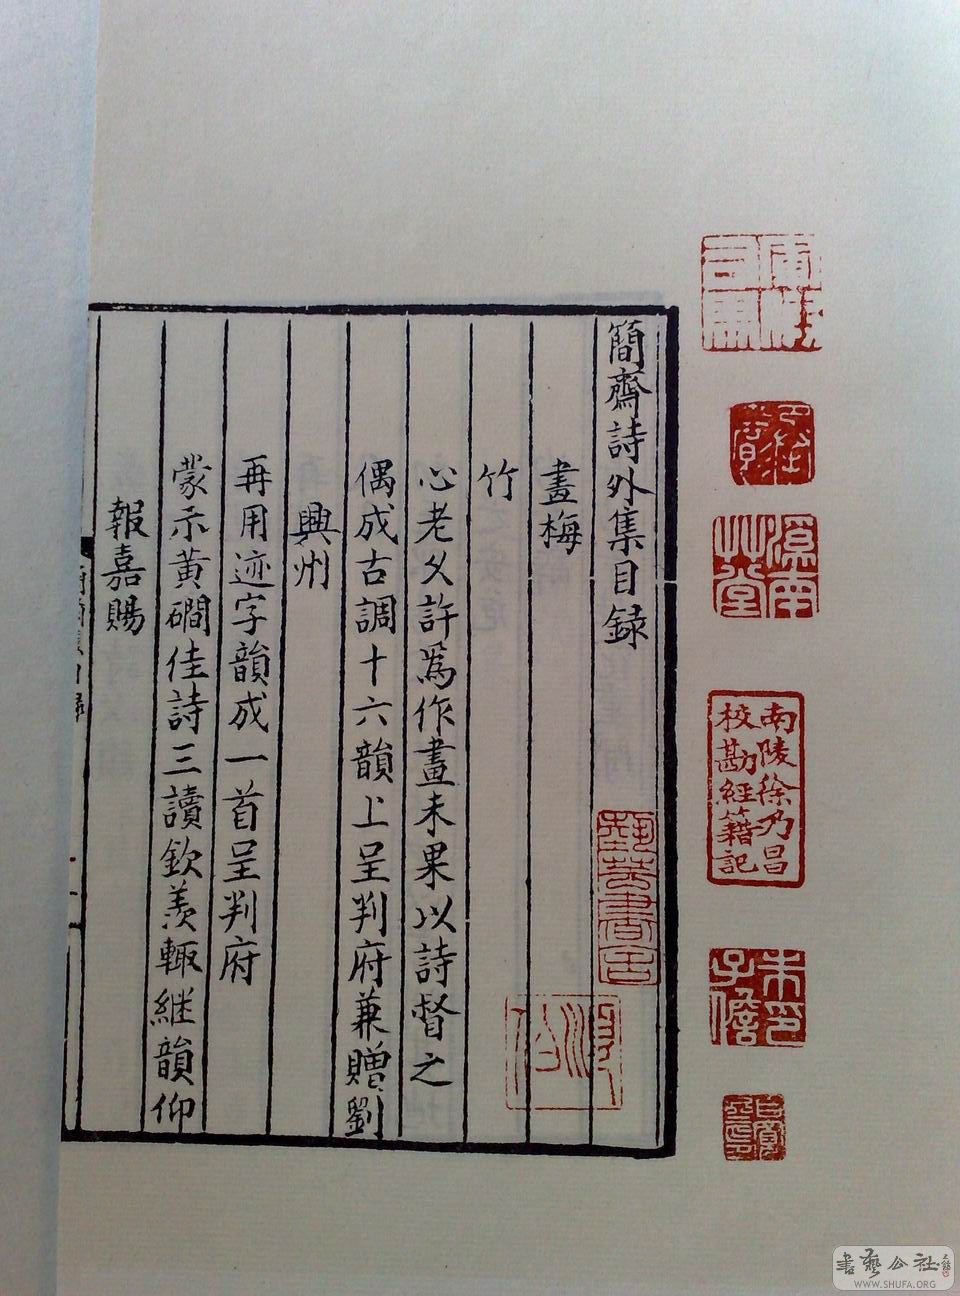 簡齋詩外集目録
畫梅
竹
心老久許為作畫未果以詩督之
偶成古調十六韻上呈判府兼贈劉
興州
再用迹字韻成一首呈判府
蒙示黄磵佳詩三讀欽羨輙継韻仰
報嘉賜
溪南
草堂
南陵徐乃昌
校勘經籍記
朱印
子儋
書藝公社
WWW.SHUFA.ORG